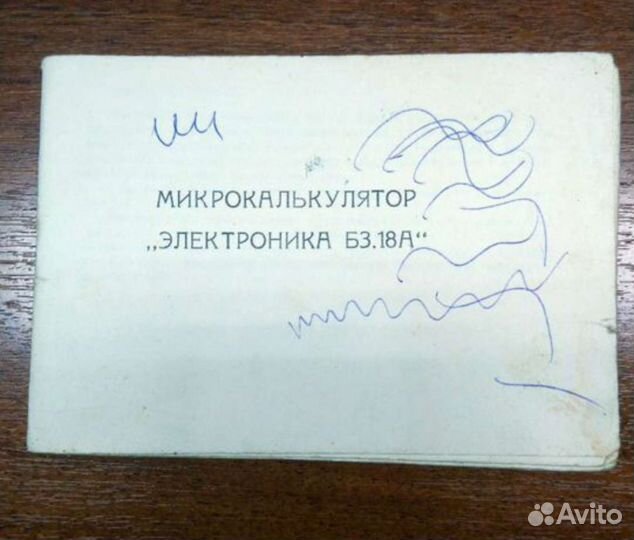 МИКРОКАЛЬКУЛЯТОР
„ЭЛЕКТРОНИКА Б3.18А“
Avito